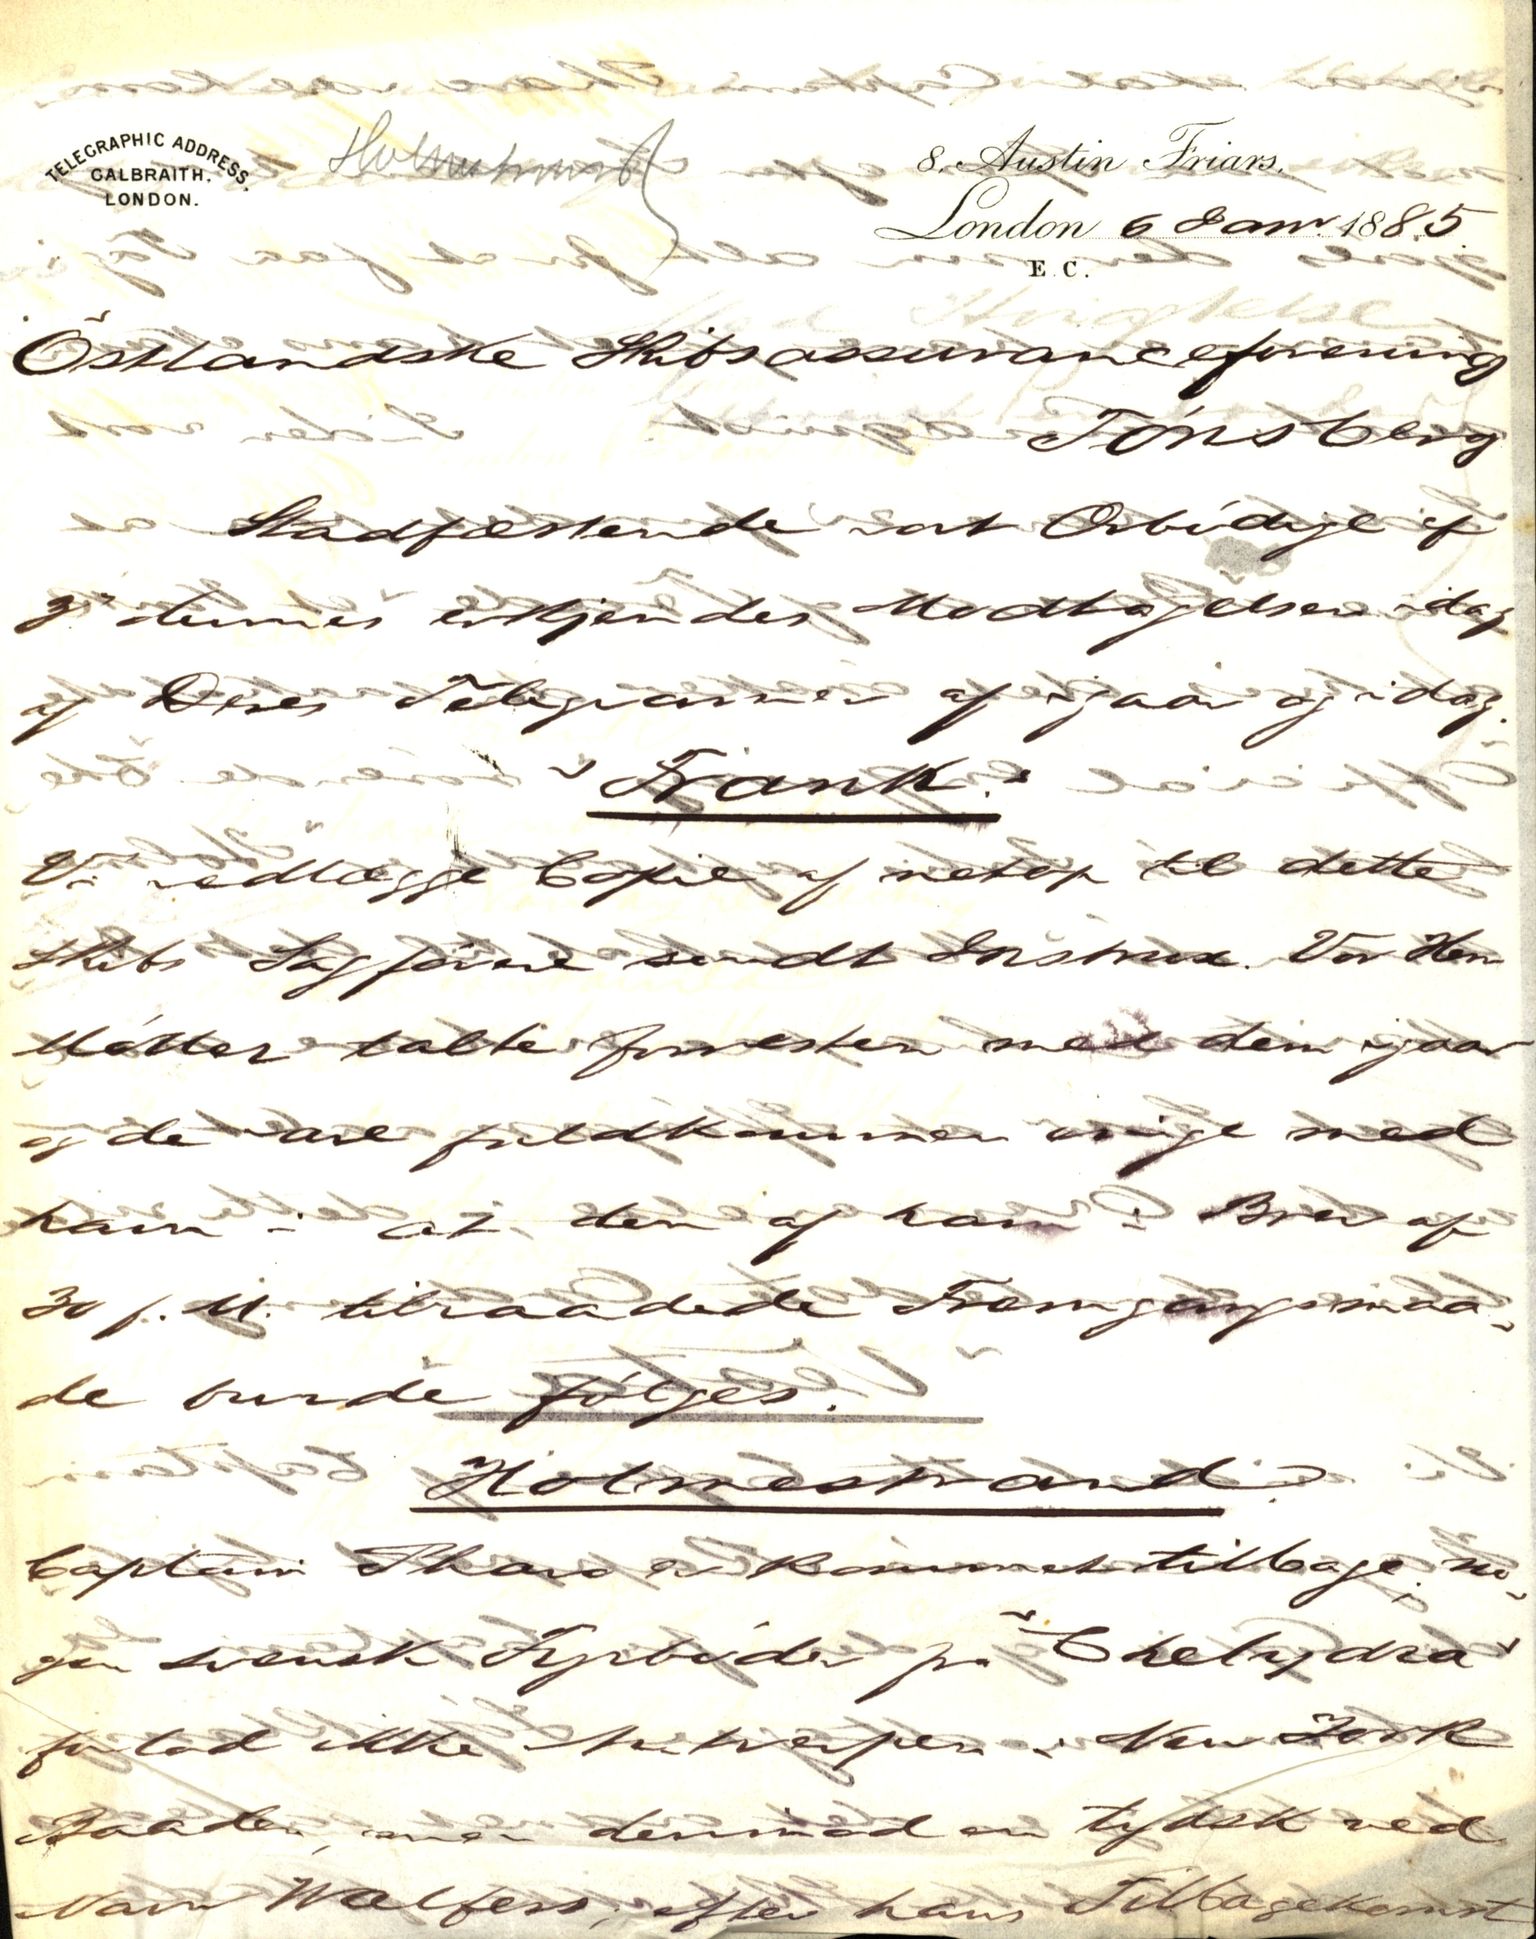 TELEGRAPHIC ADDRESS.
GALBRAITH.
LONDON.
Holmestrand
8. Austin Friars.
London 6 Janr. 1885
E.C.
Östlandske Skibsassuranceforening
Tönsberg
Stadfæstende vort Örbödige af
3die dennes erkjendes Modtagelsen idag
af Deres Telegrammer af igaar og idag.
"Frank."
Vi vedlægge Copie af netop til dette
Skibs Sagförere sendt Instrux. Vor Herr
Möller talte forresten med dem igaar
og de vare fuldkommen enige med
ham i at den af ham i Brev af
30 f. M. tilraadede Fremgangsmaa-
de burde fölges.
Holmestrand.
Captain Thorsö er kommet tilbage; no-
gen svensk Fyrböder fra "Chelydra"
forlod ikke Antwerpen i New York
Baaden, men derimod en tydsk ved
Navn Wolfers; efter hans Tilbagekomst